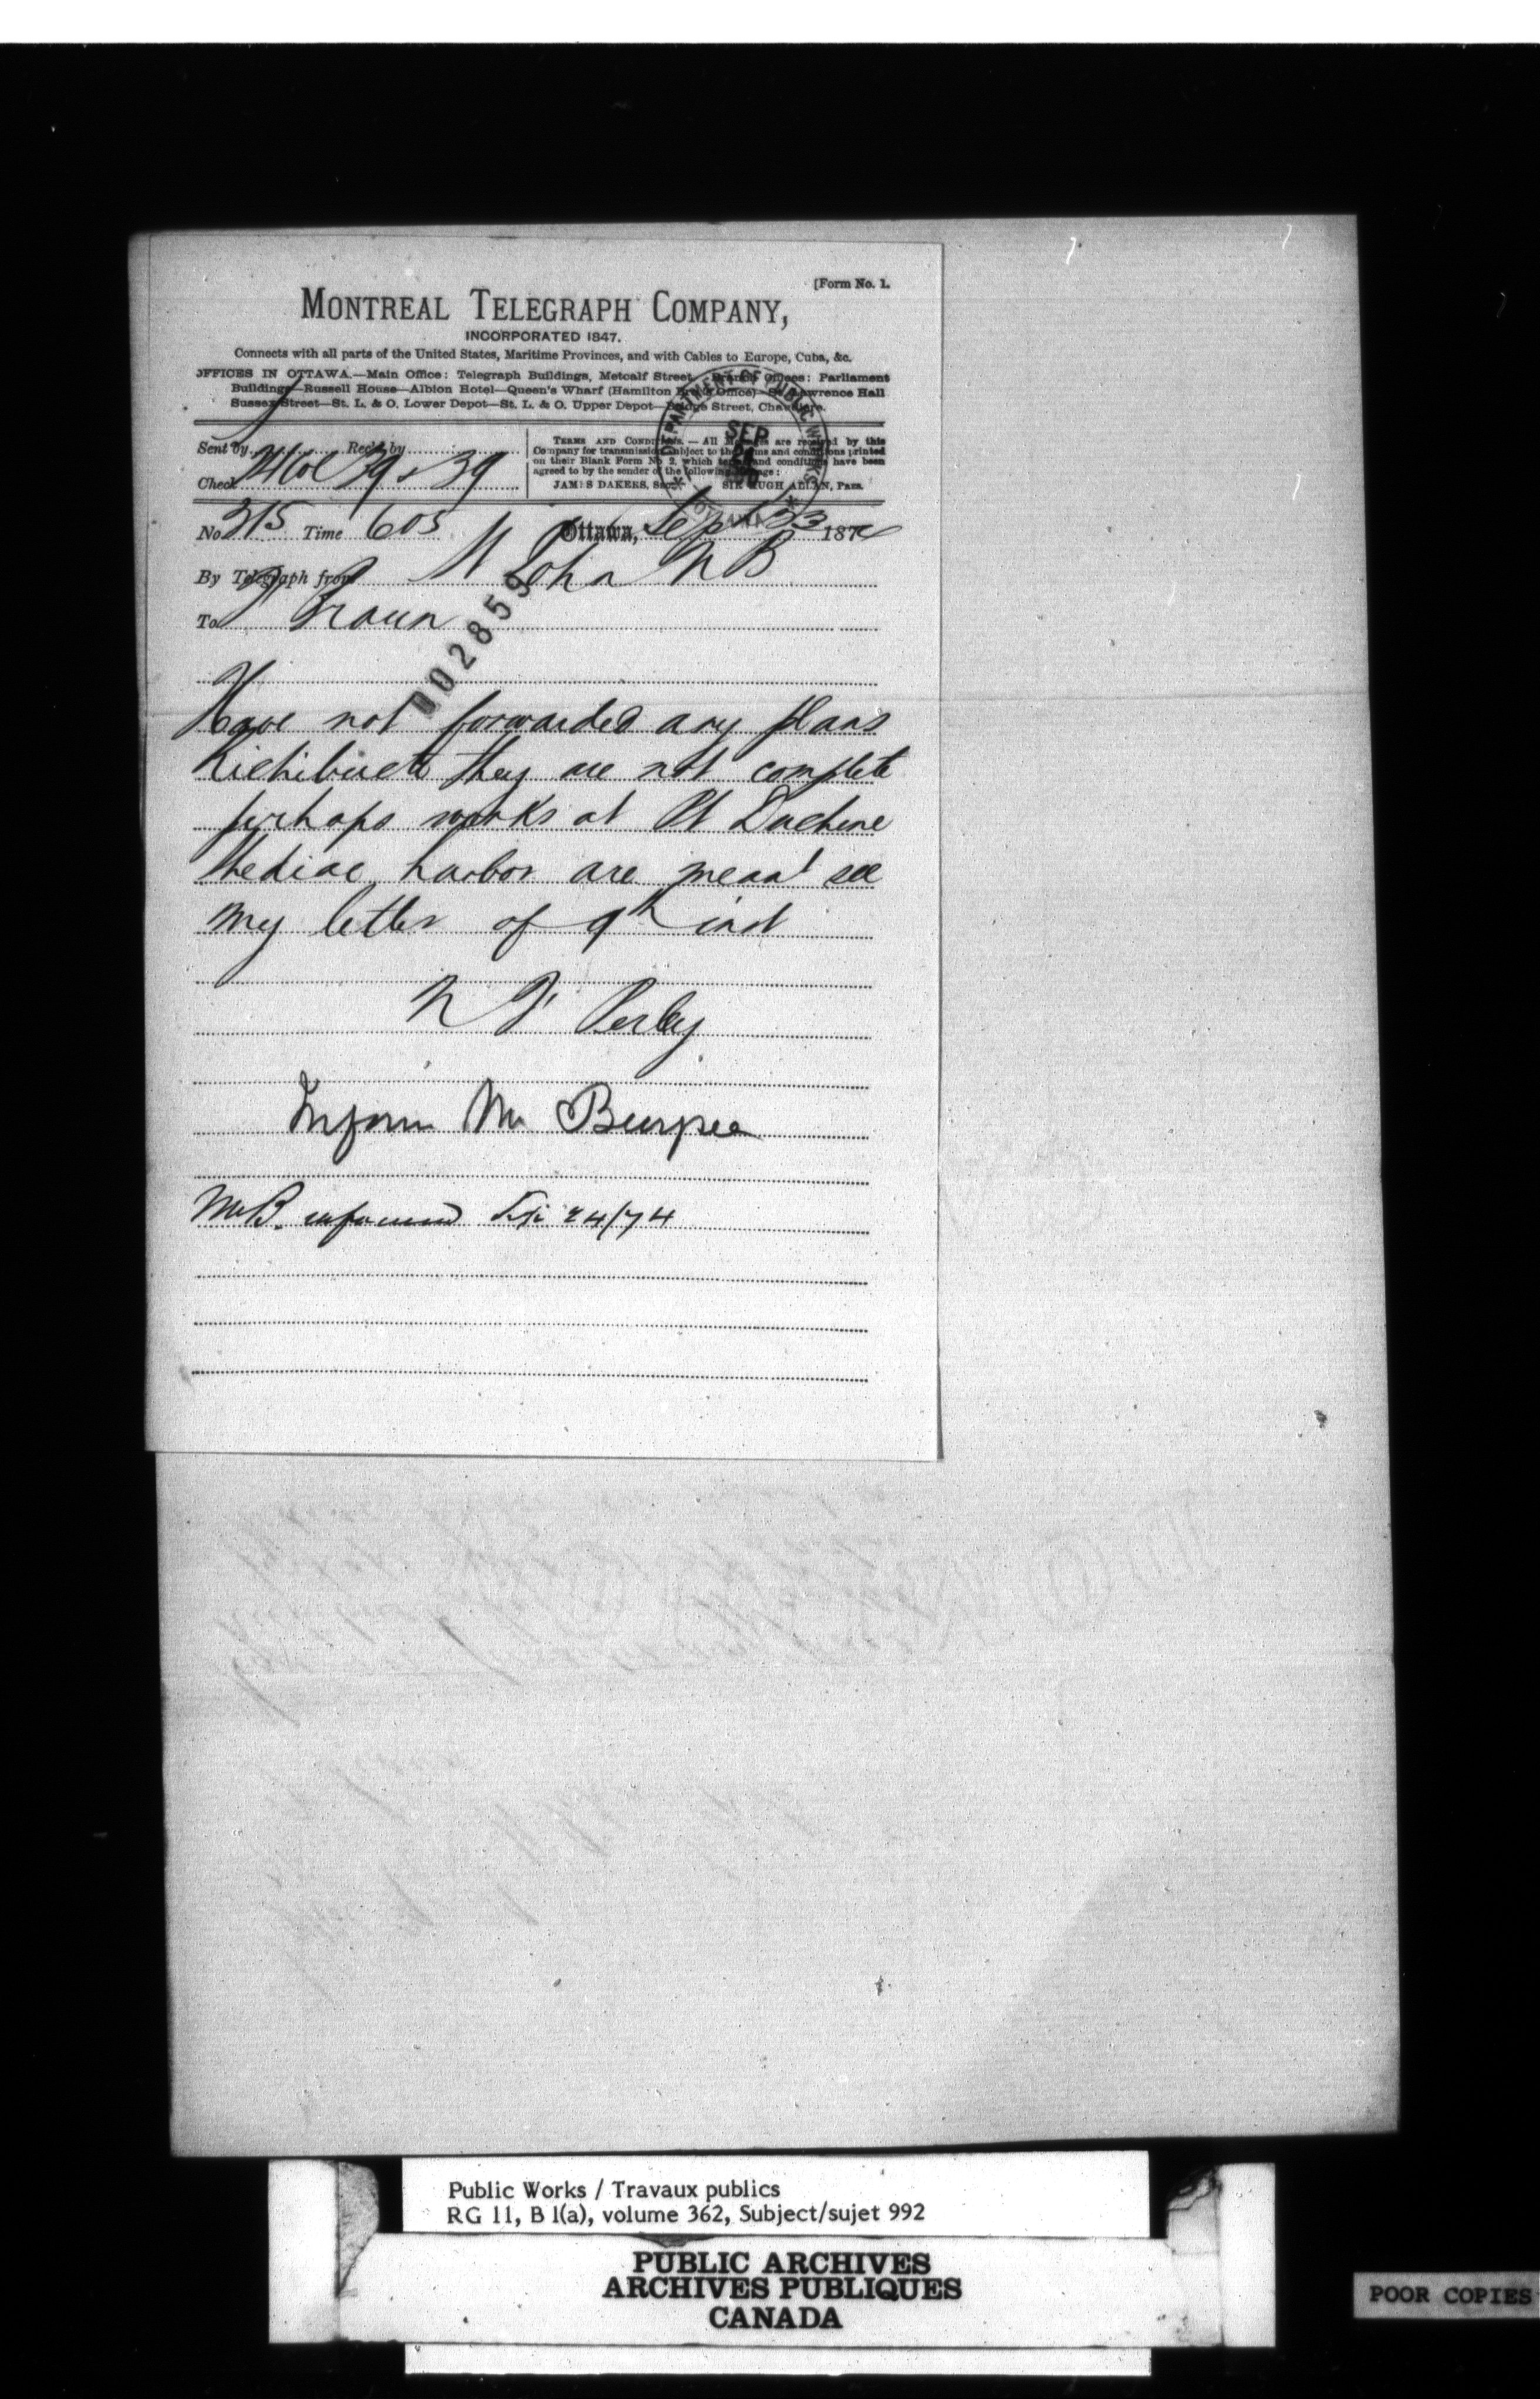 [Form No. 1.
MONTREAL TELEGRAPH COMPANY,
INCORPORATED 1847.
Connects with all parts of the United States, Maritime Provinces, and with Cables to Europe, Cuba, &c.
OFFICES IN OTTAWA.—Main Office: Telegraph Buildings, Metcalf Street—Branch Offices: Parliament
Buildings—Russell House—Albion Hotel—Queen's Wharf (Hamilton Office)—St. Lawrence Hall
Sussex Street—St. L. & O. Lower Depot—St. L. & O. Upper Depot—Bridge Street, Chaudiere.
DEPARTMENT OF PUBLIC WORKS
SEP
OTTAWA
Sent by Rec'd by
Check 39
TERMS AND CONDITIONS.—All Messages are received by this
Company for transmission subject to the terms and conditions printed
on their Blank Form No 2, which terms and conditions have been
agreed to by the sender of the following message:
JAMES DAKERS, Sec. SIR HUGH ALLAN, Pres.
No 315 Time 605 Ottawa, Sept 23 1874
By Telegraph from St John N B
To F Braun
002859
Have not forwarded any plans
Richibucto they are not complete
perhaps works at Pt Duchene
Shediac harbor are meant see
my letter of 9th inst
H F Perley
Inform Mr Burpee
Mr B. informed Sep 24/74
Public Works / Travaux publics
RG 11, B 1(a), volume 362, Subject/sujet 992
PUBLIC ARCHIVES
ARCHIVES PUBLIQUES
CANADA
POOR COPIES